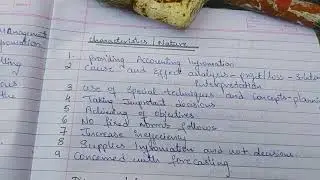 Management
Information
Characteristics / Nature
1. Providing Accounting Information
2 Cause and Effect analysis - profit/loss -
Interpretation
3 use of Special techniques and concepts - planning
4 Taking Important decisions
5 Achieving of objectives
6 No fixed Norms follows
7 Increase in efficiency
8 Supplies Information and not decisions
9 Concerned with forecasting
the